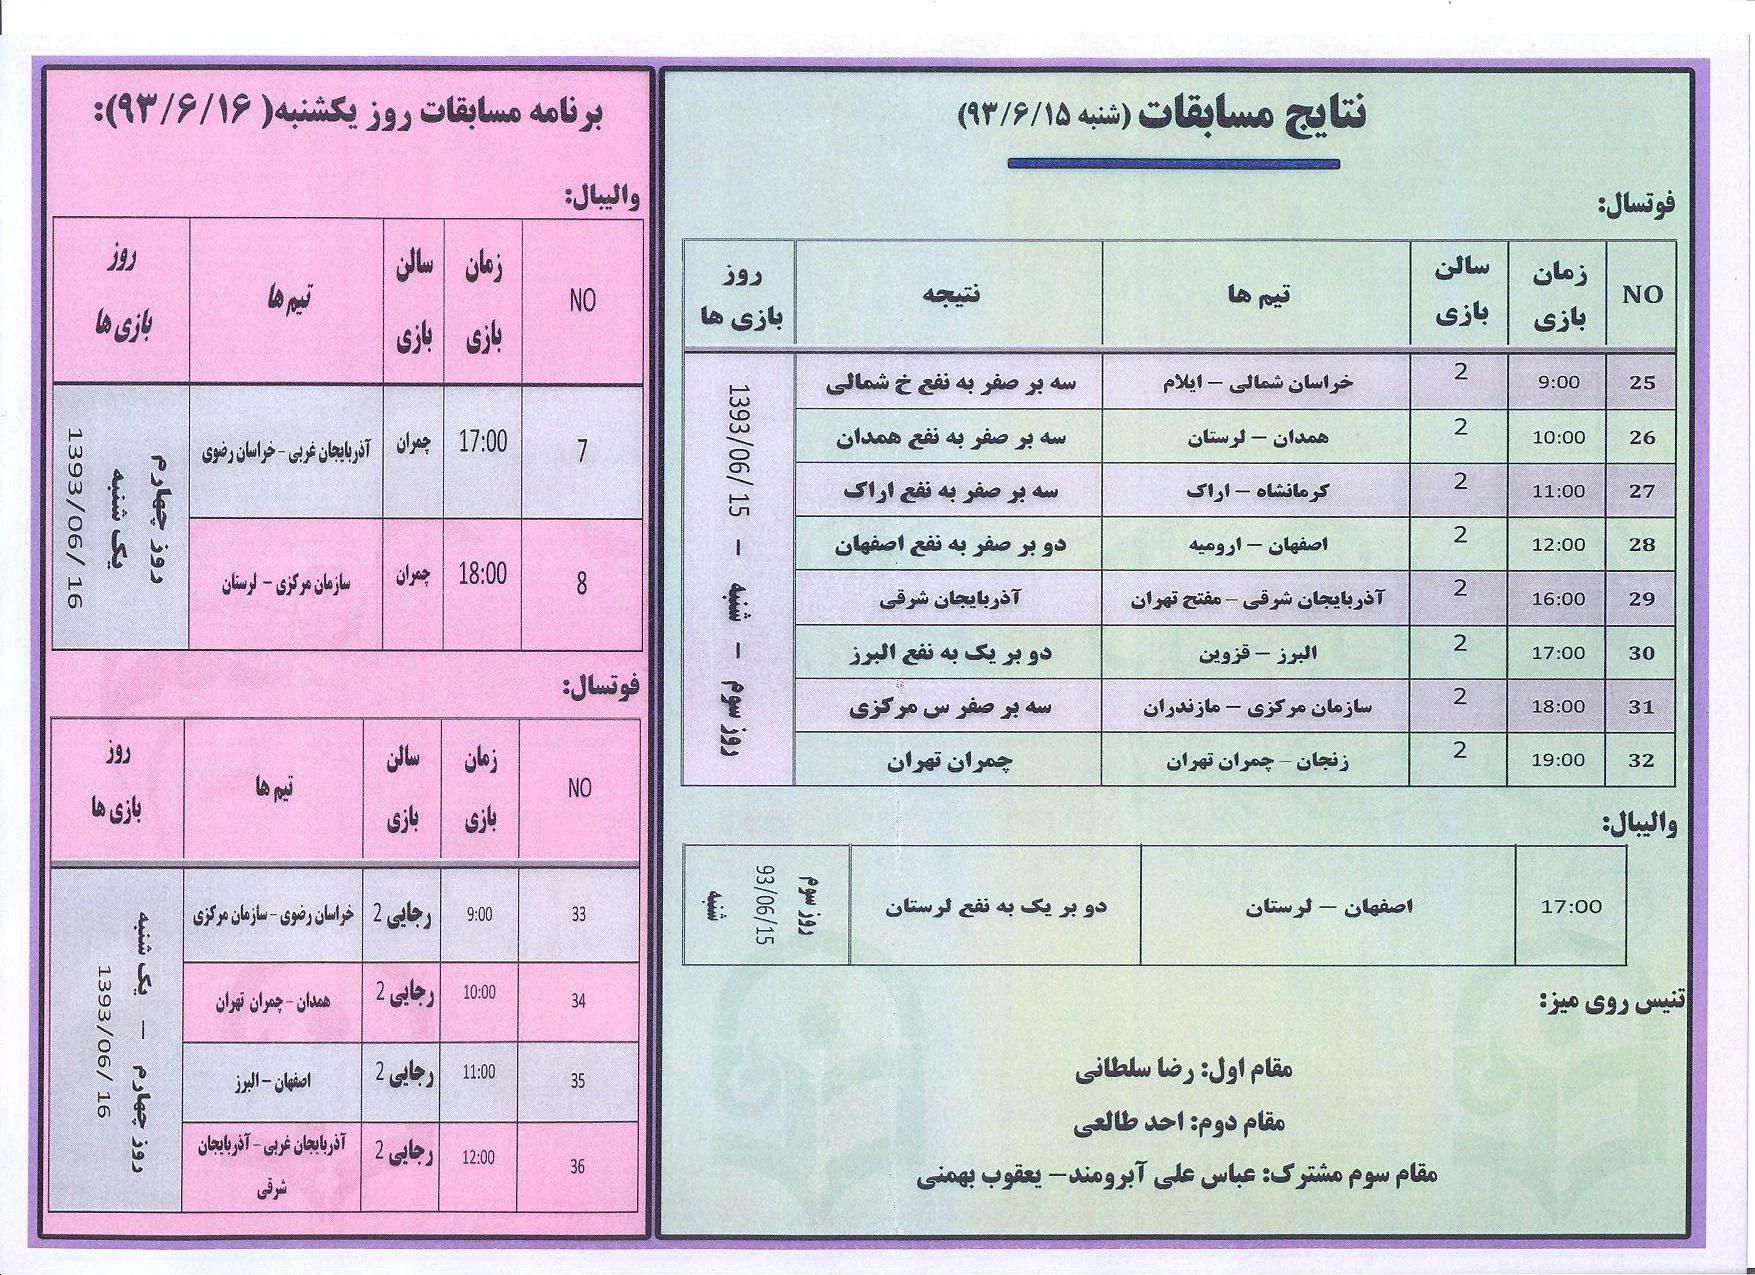 نتایج مسابقات (شنبه ۹۳/۶/۱۵)
فوتسال:
NO زمان بازی سالن بازی تیم ها نتیجه روز بازی ها
25 9:00 2 خراسان شمالی – ایلام سه بر صفر به نفع خ شمالی
26 10:00 2 همدان – لرستان سه بر صفر به نفع همدان
27 11:00 2 کرمانشاه – اراک سه بر صفر به نفع اراک
28 12:00 2 اصفهان – ارومیه دو بر صفر به نفع اصفهان
29 16:00 2 آذربایجان شرقی – مفتح تهران آذربایجان شرقی
30 17:00 2 البرز – قزوین دو بر یک به نفع البرز
31 18:00 2 سازمان مرکزی – مازندران سه بر صفر س مرکزی
32 19:00 2 زنجان – چمران تهران چمران تهران
روز سوم – شنبه – 1393/06/15
والیبال:
17:00 اصفهان – لرستان دو بر یک به نفع لرستان
روز سوم
93/06/15
شنبه
تنیس روی میز:
مقام اول: رضا سلطانی
مقام دوم: احد طالعی
مقام سوم مشترک: عباس علی آبرومند – یعقوب بهمنی
برنامه مسابقات روز یکشنبه( ۹۳/۶/۱۶):
والیبال:
NO زمان بازی سالن بازی تیم ها روز بازی ها
7 17:00 چمران آذربایجان غربی – خراسان رضوی
8 18:00 چمران سازمان مرکزی – لرستان
روز چهارم
یک شنبه
1393/06/16
فوتسال:
NO زمان بازی سالن بازی تیم ها روز بازی ها
33 9:00 رجایی 2 خراسان رضوی – سازمان مرکزی
34 10:00 رجایی 2 همدان – چمران تهران
35 11:00 رجایی 2 اصفهان – البرز
36 12:00 رجایی 2 آذربایجان غربی – آذربایجان
شرقی
روز چهارم – یک شنبه
1393/06/16